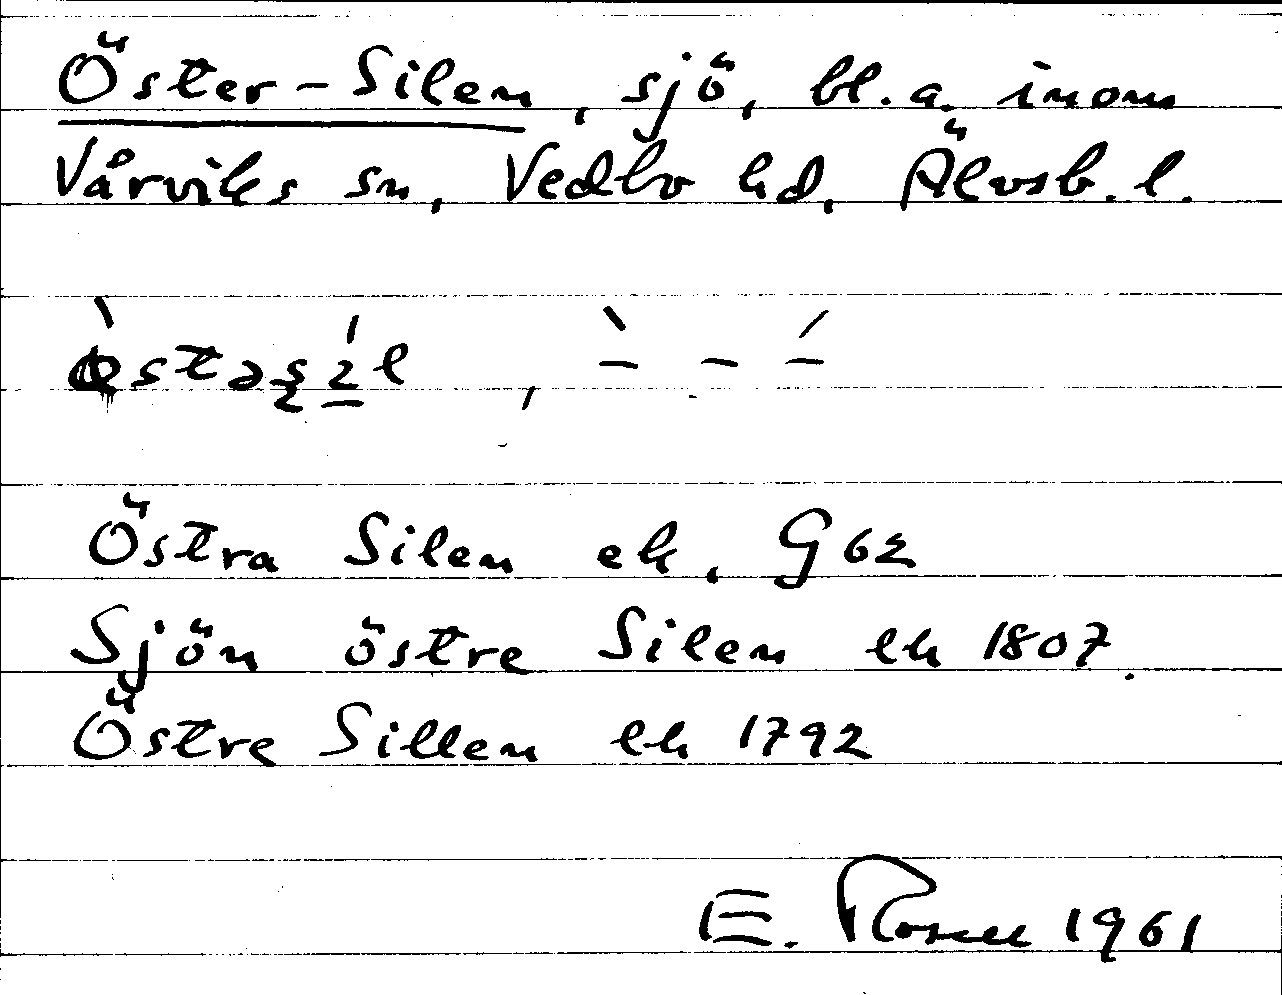 Öster-Silen, sjö, bl.a. inom
Vårviks sn, Vedbo hd, Älvsb. l.
Östra Silen ek. G 62
Sjön östre Silen ek 1807.
Östre Sillen ek 1792
E. Rosell 1961